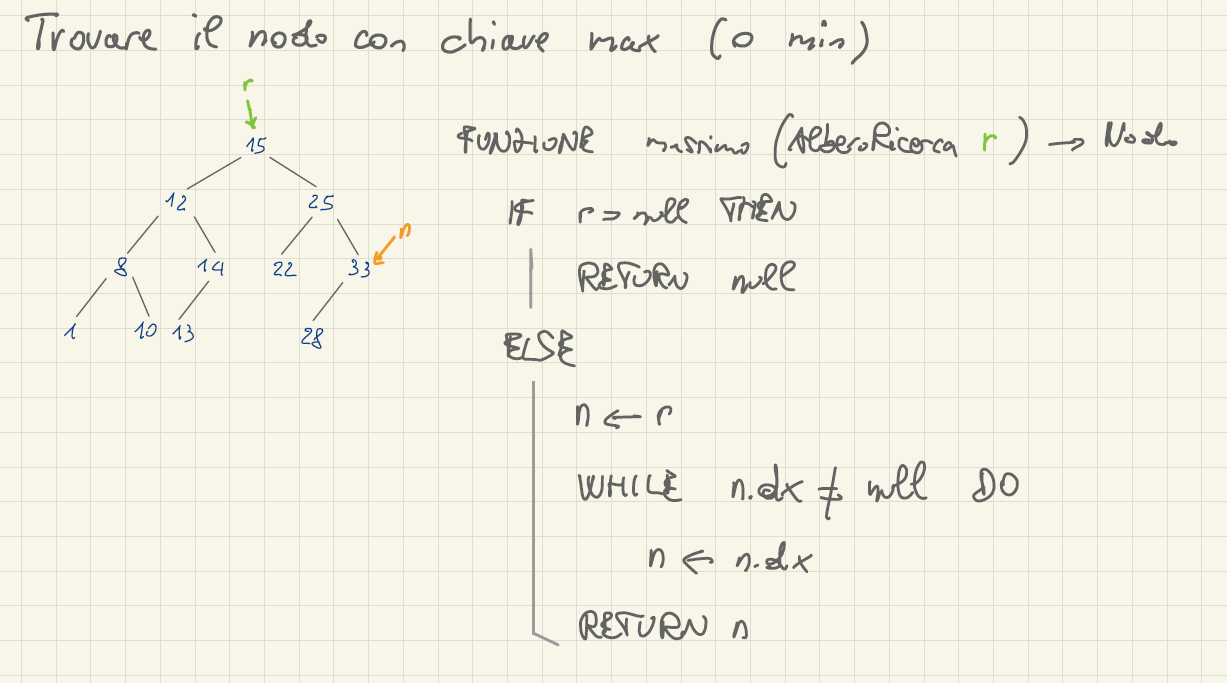 Trovare il nodo con chiave max (o min)
r
15
12 25
n
8 14 22 33
1 10 13 28
FUNZIONE massimo (AlberoRicerca r) → Nodo
IF r = null THEN
RETURN null
ELSE
n ← r
WHILE n.dx ≠ null DO
n ← n.dx
RETURN n